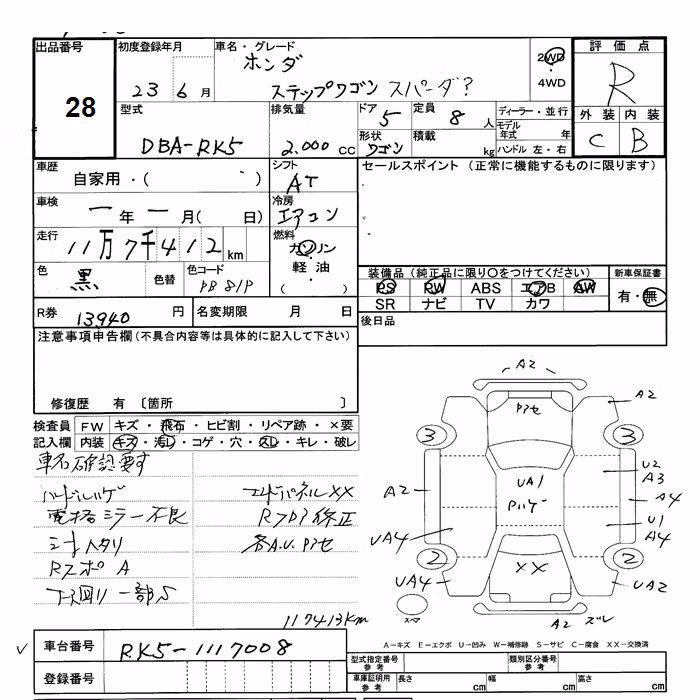 出品番号
28
初度登録年月
23年 6月
車名・グレード
ホンダ
ステップワゴン スパーダ?
2WD
・
4WD
評価点
R
外装 内装
C B
型式
DBA-RK5
排気量
2.000 cc
ドア 5
定員 8 人
形状 ワゴン
積載 kg
ディーラー・並行
モデル年式 年
ハンドル 左・右
車歴
自家用・( )
シフト
AT
車検
一年一月( 日)
冷房
エアコン
走行
11万7千412km
燃料
ガソリン
・
軽油
( )
色
黒
色替
色コード
PB81P
R券 13940 円
名変期限 月 日
セールスポイント(正常に機能するものに限ります)
装備品(純正品に限り〇をつけてください)
PS PW ABS エアB AW
SR ナビ TV カワ
新車保証書
有・無
後日品
注意事項申告欄(不具合内容等は具体的に記入して下さい)
修復歴 有 〔箇所 〕
検査員記入欄
FW キズ・飛石・ヒビ割・リペア跡・×要
内装 キズ・汚レ・コゲ・穴・スレ・キレ・破レ
車名確認要す
ハンドルハゲ
電格ミラー不良
シートヘタリ
Rスポ A
下回り一部S
エンドパネルXX
Rフロア修正
各A.U.Pアセ
117413km
A2
A2
Pアセ
3
3
A2
UA1
Pハゲ
U2
A3
A4
U1
A4
UA4
2
2
XX
UA4
UA2
スペア
A2 ズレ
A-キズ E-エクボ U-凹み W-補修跡 S-サビ C-腐食 XX-交換済
車台番号
RK5-1117008
登録番号
型式指定番号 参考
類別区分番号 参考
車庫証明用 参考
長さ cm
幅 cm
高さ cm